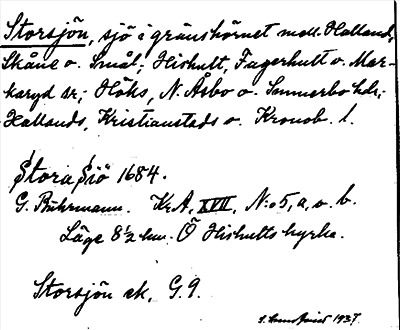 Storsjön, sjö i gränshörnet mell. Halland,
Skåne o. Smål; Hishult, Fagerhult o. Mar-
karyd sr; Höks, N. Åsbo o. Sunnerbo hdr;
Hallands, Kristianstads o. Kronob. l.
Stora Siö 1684.
G. Buhrmann. K.A, XVII, No 5, a, o. b.
Läge 8½ km. Ö Hishults kyrka.
Storsjön ek, G.9.
1937.